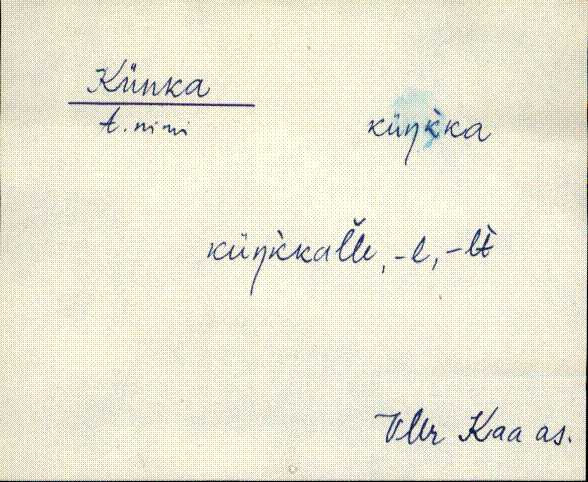 Künka
t. nimi küŋk̀ka
küŋk̀kalľe, -l, -lt̀
VMr Kaa as.